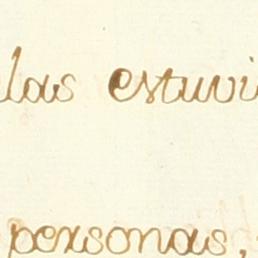 las estuvi
personas,